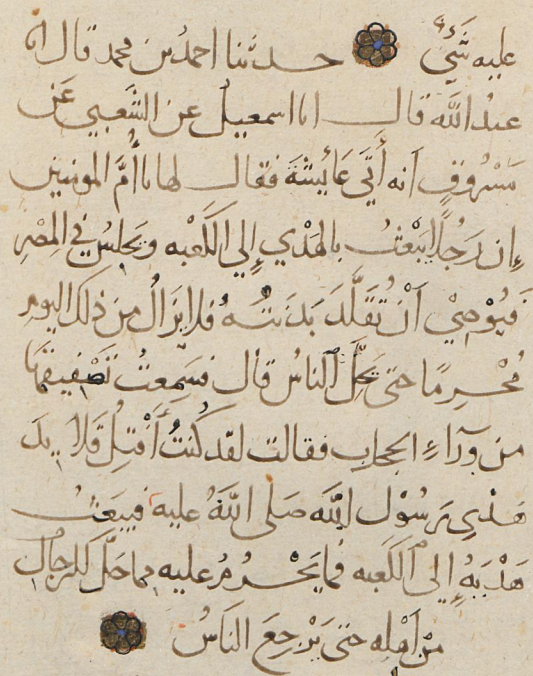 عليه شيء حدثنا احمد بن محمد قال انا
عبد الله قال انا اسمعيل عن الشعبي عن
مسروق انه أتى عائشة فقال لها يا أم المومنين
إن رجلا يبعث بالهدي إلى الكعبه ويجلس في المصر
فيوصي أن تقلد بدنته فلا يزال من ذلك اليوم
محرما حتى يحل الناس قال فسمعت تصفيقها
من وراء الحجاب فقالت لقد كنت أفتل قلايد
هدي رسول الله صلى الله عليه فيبعث
هديه إلى الكعبه فما يحرم عليه مما حل للرجال
من أهله حتى يرجع الناس